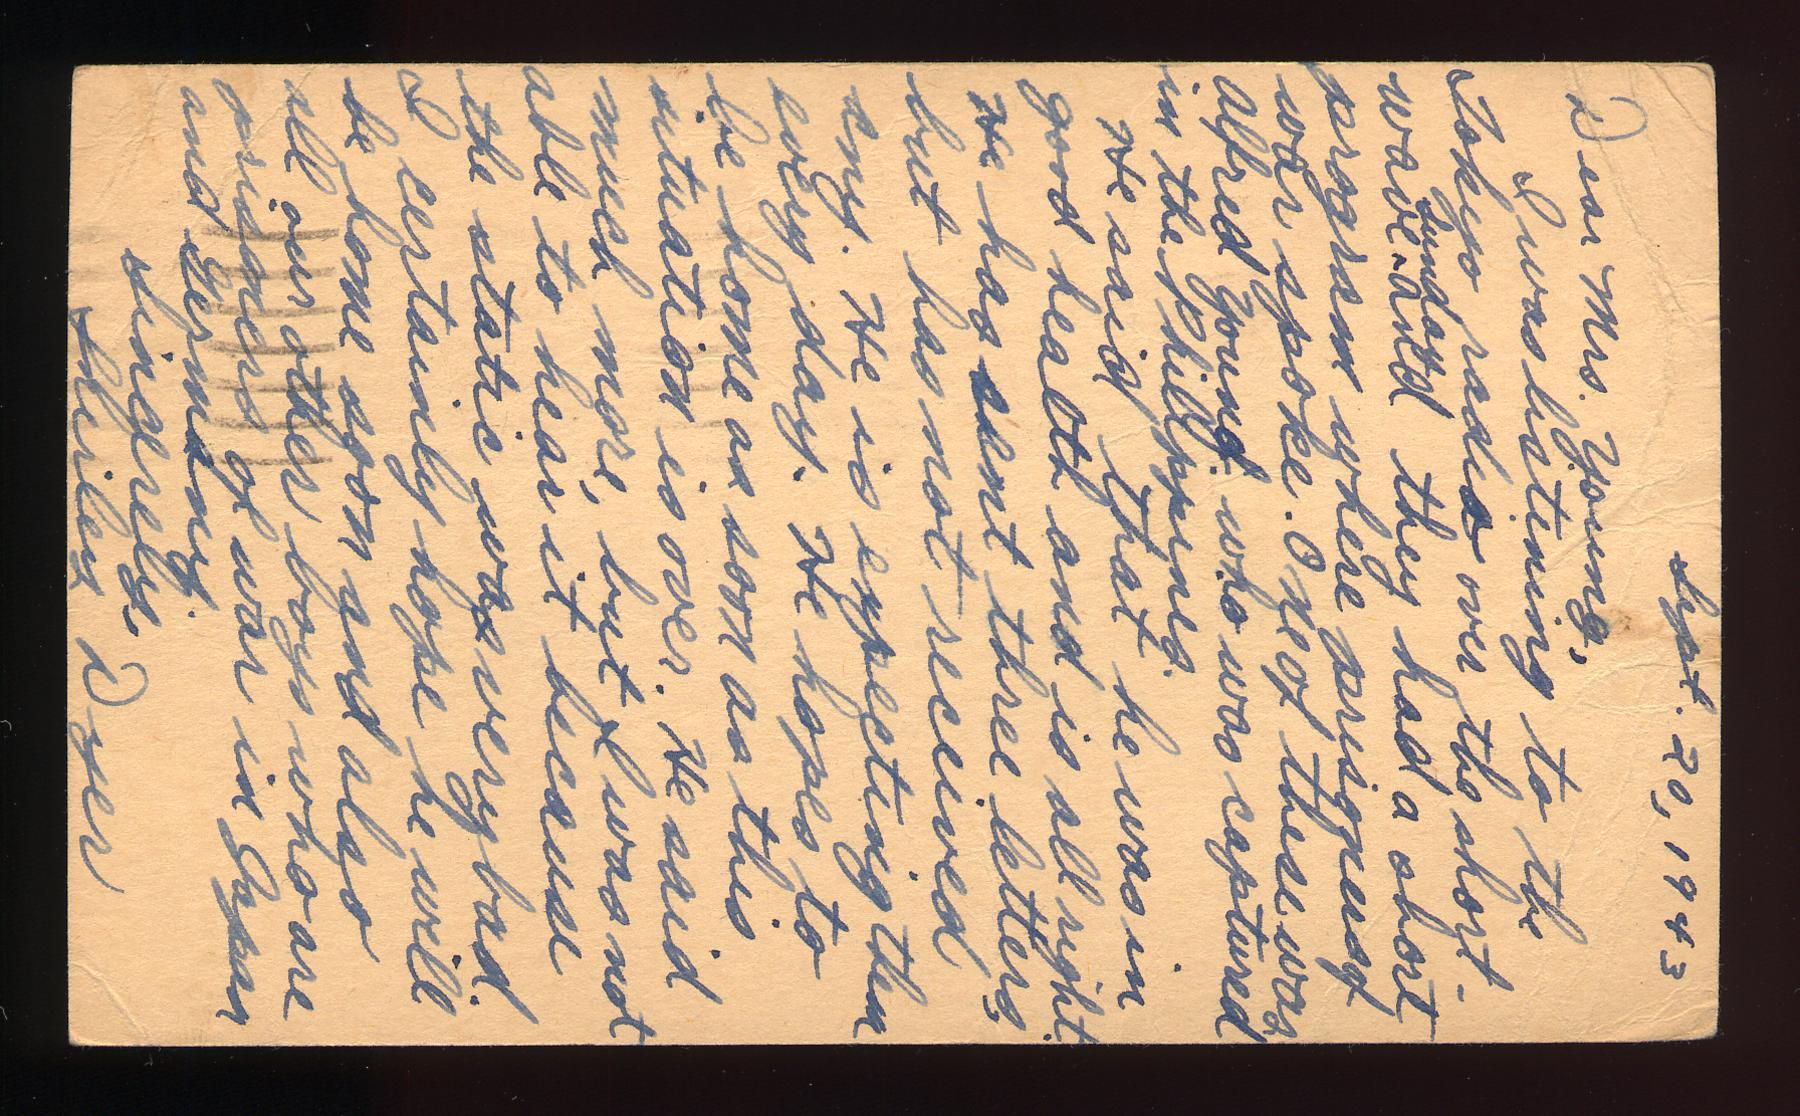 Sept. 20, 1943
Dear Mrs. Young,
I was listening to the
Tokyo radio over the short-
wave and they had a short
Sunday
program where prisoners of
war spoke. One of these was
Alfred Young who was captured
in the Phillippines.
He said that he was in
good health and is all right.
He has sent three letters,
but has not received
any. He is expecting them
every day. He hopes to
be home as soon as this
situation is over. He said
much more, but I was not
able to hear it because
the static was very bad.
I certainly hope he will
be home soon and also
all our other boys who are
prisoners of war in Japan
and Germany.
Sincerely,
Shirley Dyer